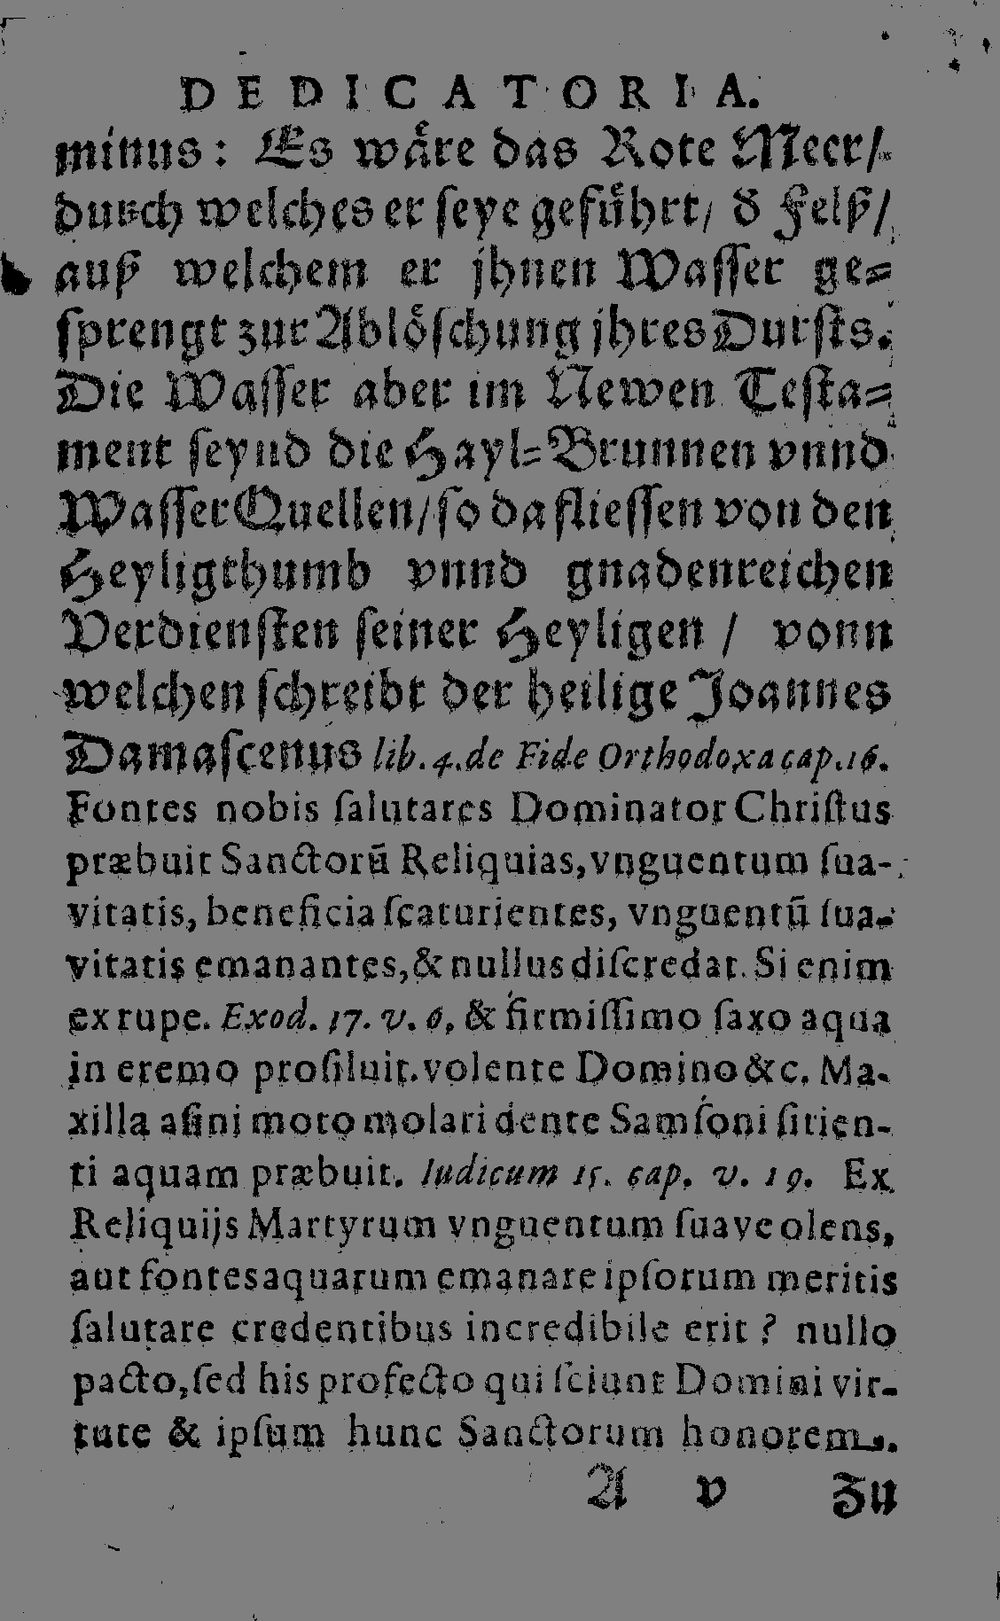 DEDICATORIA.
minus: Es wåre das Rote Meer/
durch welches er ſeye gefůhrt/ ð Felß/
auß welchem er jhnen Waſſer ge⸗
ſprengt zur Ablöſchung jhres Durſts.
Die Waſſer aber im Newen Teſta⸗
ment ſeynd die Hayl⸗Brunnen vnnd
Waſſer Quellen/ ſo da flieſſen von den
Heyligthumb vnnd gnadenreichen
Verdienſten ſeiner Heyligen / vonn
welchen ſchreibt der heilige Joannes
Damaſcenus lib. 4. de Fide Orthodoxa cap. 16.
Fontes nobis ſalutares Dominator Chriſtus
præbuit Sanctorũ Reliquias, vnguentum ſua-
vitatis, beneficia ſcaturientes, vnguentũ ſua-
vitatis emanantes, & nullus diſcredat. Si enim
ex rupe. Exod. 17. v. 6. & firmiſſimo ſaxo aqua
in eremo proſiluit. volente Domino &c. Ma-
xilla aſini moto molari dente Samſoni ſitien-
ti aquam præbuit. Iudicum 15. cap. v. 19. Ex
Reliquijs Martyrum vnguentum ſuave olens,
aut fontes aquarum emanare ipſorum meritis
ſalutare credentibus incredibile erit? nullo
pacto, ſed his profecto qui ſciunt Domini vir-
tute & ipſum hunc Sanctorum honorem.
A v Zu